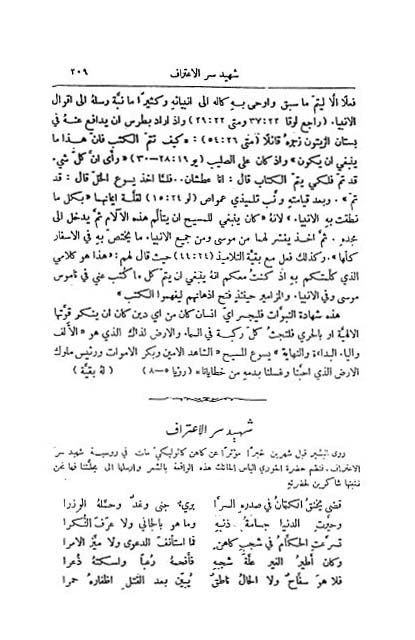 شهيد سر الاعتراف ٢٠٩
فعلًا الّا ليتمّ ما سبق واوحى به كاله الى انبيائه وكثيرًا ما نبّه رسلهُ الى اقوال
الانبياء (راجع لوقا ٣٧:٢٢ ومتى ٢٦:٢٢) واذ اراد بطرس ان يدافع عنهُ في
بستان الزيتون زجرهُ قائلًا (متى ٥٤:٢٦): «كيف تتمّ الكتب فان هذا ما
ينبغي ان يكون» واذ كان على الصليب (يو ٢٨:١٩–٣٠) «رأى انَّ كلّ شيء
قد تمّ فلكي يتمّ الكتاب قال: انا عطشان.. فلمَّا اخذ يسوع الخلّ قال: قد
تمّ». وبعد قيامته وبّخ تلميذَي عمواص (لو ١٥:٢٤) لقلَّة ايمانهما «بكل ما
نطقت به الانبياء» لانهُ «كان ينبغي للمسيح ان يتألَّم هذه الآلام ثمَّ يدخل الى
مجده. ثمَّ اخذ يفسّر لهما من موسى ومن جميع الانبياء ما يختصّ به في الاسفار
كلّها». وكذلك فعل مع بقيَّة التلاميذ (٤٤:٢٤) حيث قال لهم: «هذا هو كلامي
الذي كلَّمتكم به اذ كنتُ معكم انهُ ينبغي ان يتمّ كل ما كُتب عني في ناموس
موسى وفي الانبياء والمزامير حينئذٍ فتح اذهانهم ليفهموا الكتب»
هذه شهادة النبوَّات فليجسر ايّ انسان كان من اي دين كان ان ينكر قوَّتها
الالهيَّة او بالحري فلتجثُ كلّ ركبة في السماء والارض لذاك الذي هو «الالف
والياء البداءة والنهاية» يسوع المسيح «الشاهد الامين وبكر الاموات ورئيس ملوك
الارض الذي احبَّنا وغسلنا بدمه من خطايانا» (رؤيا ٥–٨) (لهُ بقيَّة)
شهيد سر الاعتراف
روى البشير قبل شهرين خبرًا مؤثرًا عن كاهن كاثوليكي مات في روسية شهيد سرّ
الاعتراف. فنظم حضرة الخوري الياس الحائك هذه الواقعة بالشعر وارسلها الى مجلَّتنا فها نحن
نثبتها شاكرين لحضرته
قضى يخنقُ الكتمانُ في صدرهِ السرَّا بريءٌ جنى وغدٌ وحمَّلهُ الوزرا
وحيَّرت الدنيا جسامةُ ذنبهِ وما هو بالجاني ولا عرف النُكرا
تسرَّعت الحكَّامُ في شجبِ كاهنٍ فما استأنف الدعوى ولا ميَّز الامرا
وكان الغير علَّة شجبهِ فأفحمهُ رُعبًا واسكتهُ ذُعرا
فلا هو سفَّاحٌ ولا الحالُ ناطقٌ يُبيّن بعد القتل اظفارهُ حمرا